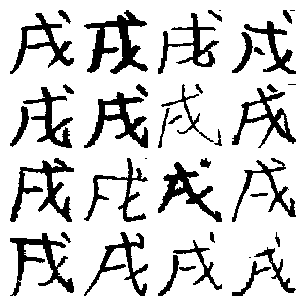 戌戌戌戌
戌戌戌戌
戌戌戌戌
戌戌戌戌